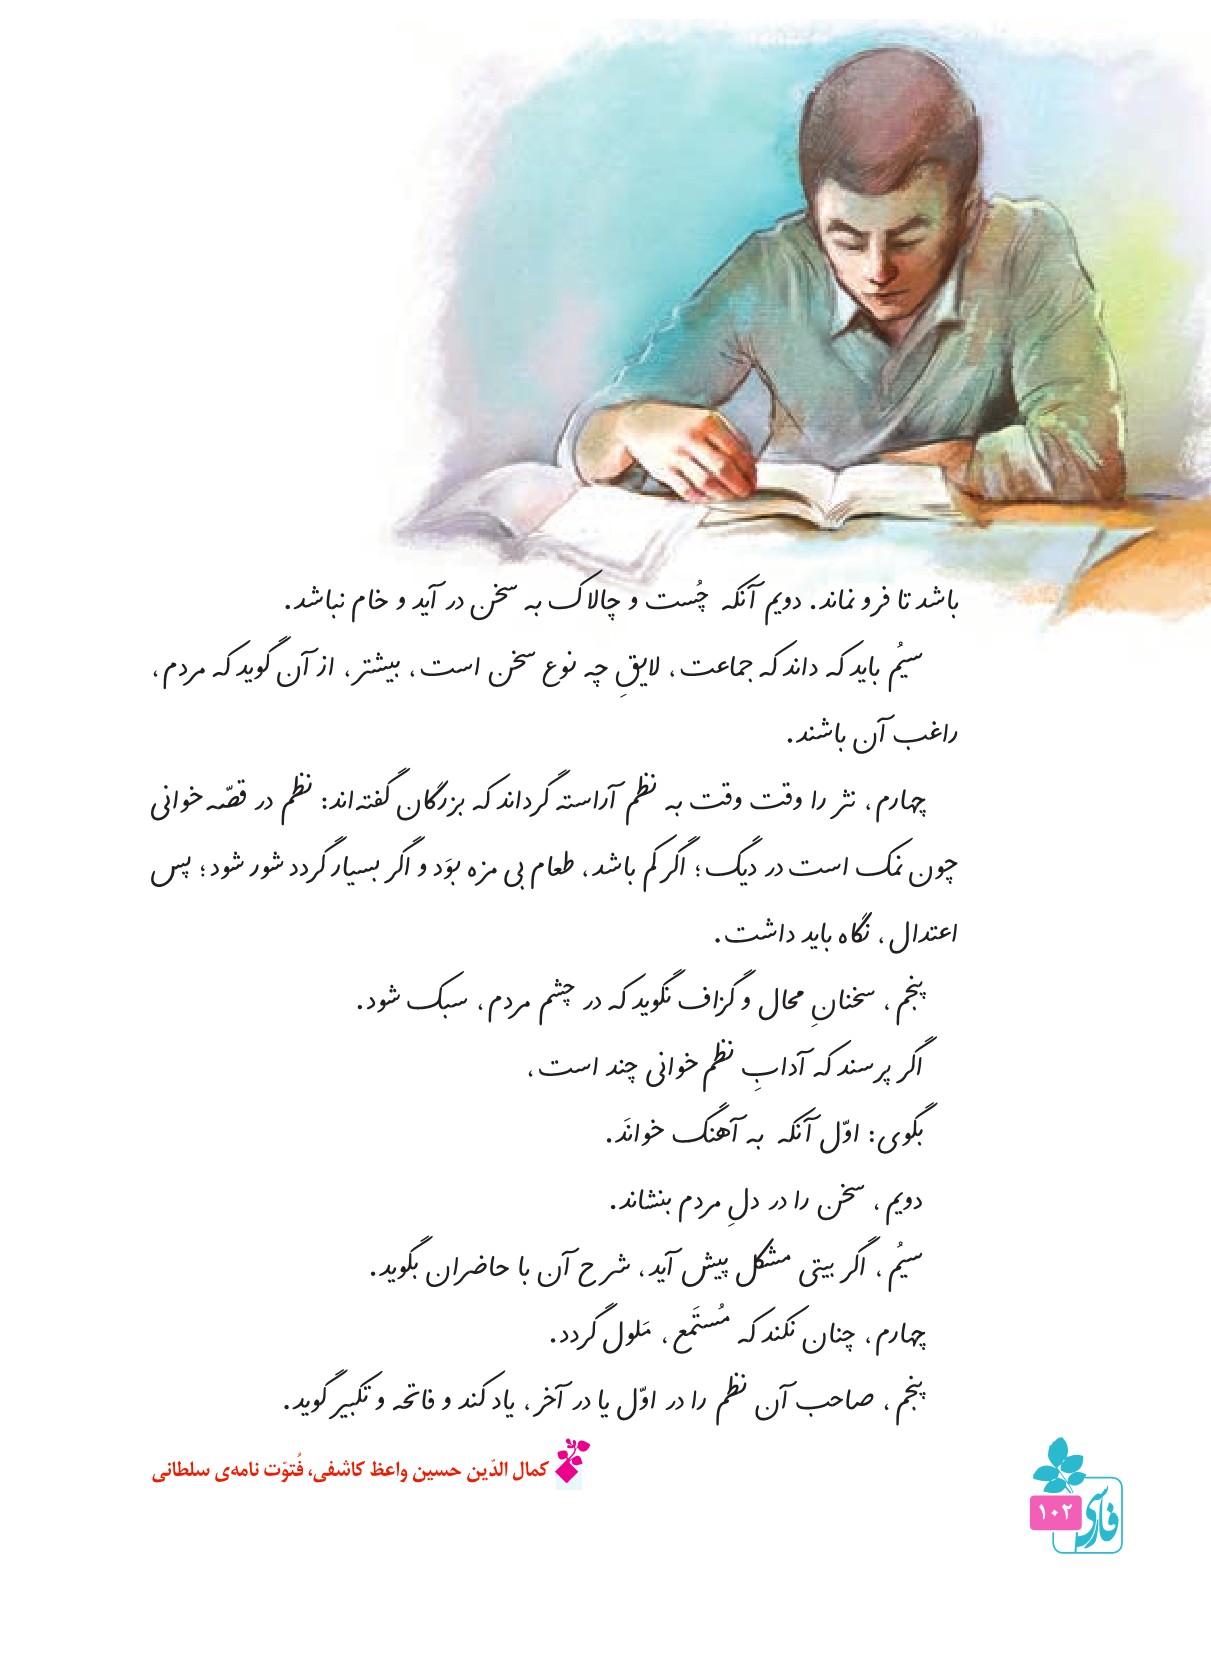 باشد تا فرو نماند. دویم آنکه چُست و چالاک به سخن در آید و خام نباشد.
سیُم باید که داند که جماعت، لایقِ چه نوع سخن است، بیشتر، از آن گوید که مردم،
راغب آن باشند.
چهارم، نثر را وقت وقت به نظم آراسته گرداند که بزرگان گفته‌اند: نظم در قصّه خوانی
چون نمک است در دیگ؛ اگر کم باشد، طعام بی مزه بوَد و اگر بسیار گردد شور شود؛ پس
اعتدال، نگاه باید داشت.
پنجم، سخنانِ محال و گزاف نگوید که در چشم مردم، سبک شود.
اگر پرسند که آدابِ نظم خوانی چند است،
بگوی: اوّل آنکه به آهنگ خوانَد.
دویم، سخن را در دلِ مردم بنشاند.
سیُم، اگر بیتی مشکل پیش آید، شرح آن با حاضران بگوید.
چهارم، چنان نکند که مُستَمع، مَلول گردد.
پنجم، صاحب آن نظم را در اوّل یا در آخر، یاد کند و فاتحه و تکبیر گوید.
کمال الدّین حسین واعظ کاشفی، فُتوّت نامه‌ی سلطانی
فارسی
۱۰۲